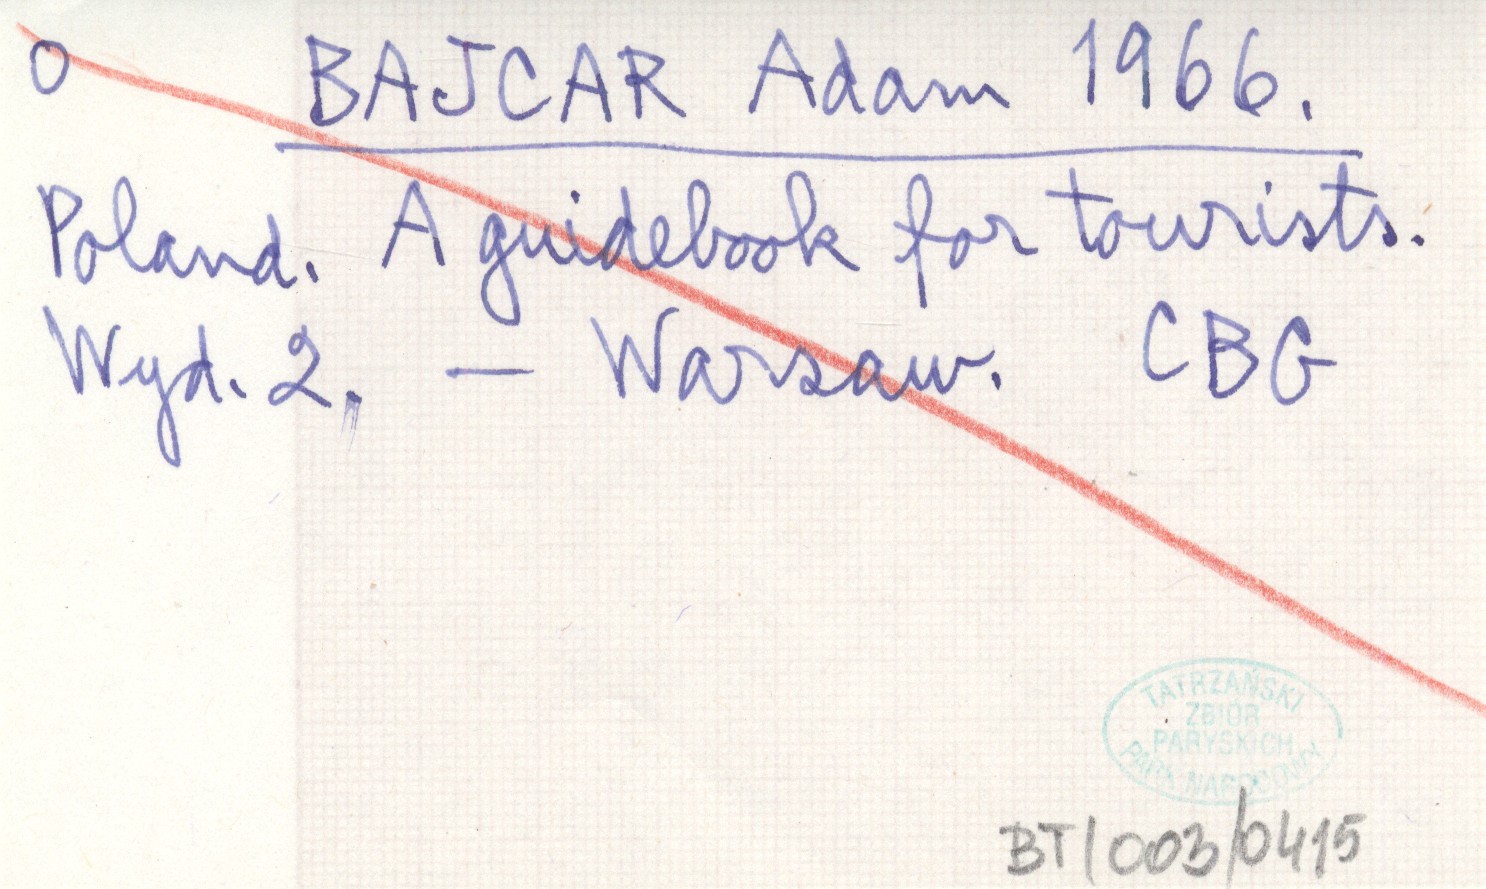 O BAJCAR Adam 1966.
Poland. A guidebook for tourists.
Wyd. 2. — Warsaw. CBG
TATRZAŃSKI
ZBIÓR
PARYSKICH
PARK NARODOWY
BT/003/0415